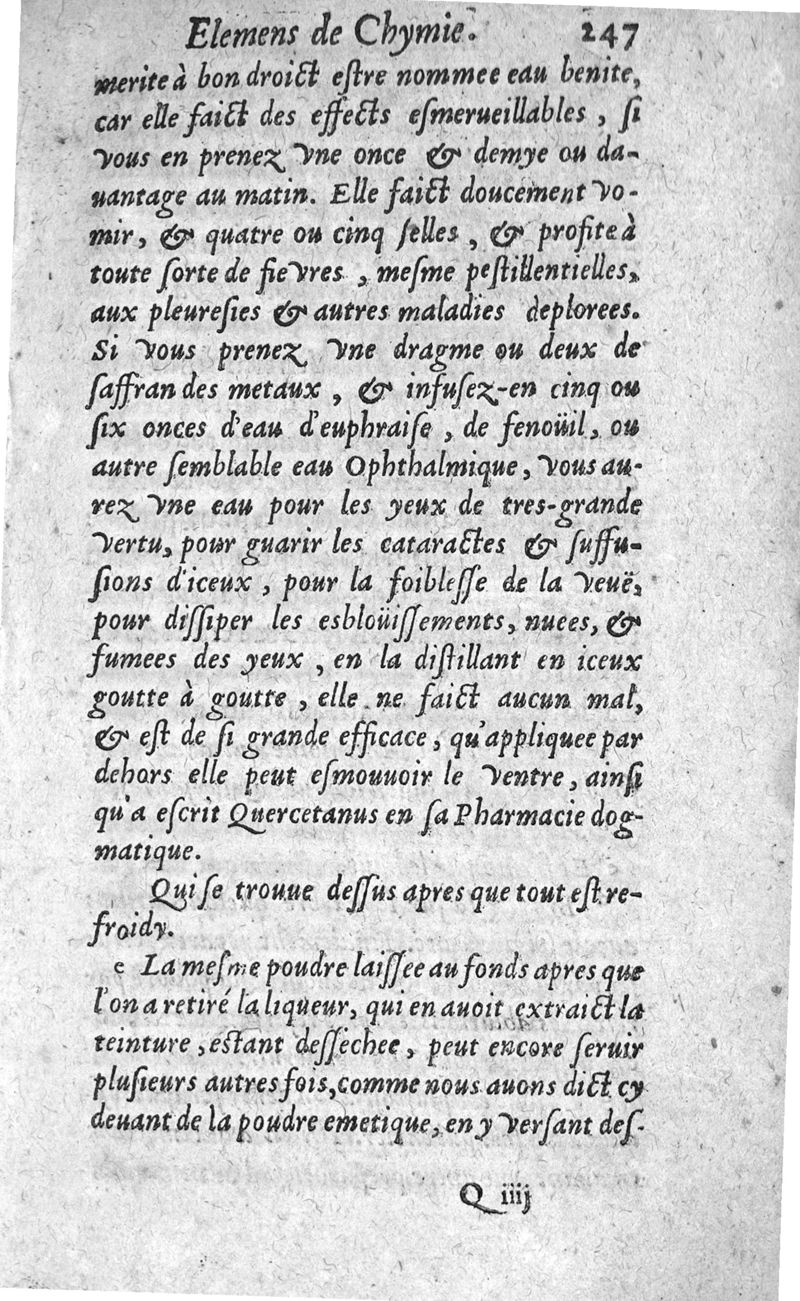 Elemens de Chymie. 247
merite à bon droict eſtre nommee eau benite,
car elle faict des effects eſmerueillables , ſi
vous en prenez vne once & demye ou da-
uantage au matin. Elle faict doucement vo-
mir, & quatre ou cinq ſelles , & profite à
toute ſorte de fievres , meſme peſtillentielles,
aux pleureſies & autres maladies deplorees.
Si vous prenez vne dragme ou deux de
ſaffran des metaux , & infuſez-en cinq ou
ſix onces d'eau d'euphraiſe , de fenoüil, ou
autre ſemblable eau Ophthalmique, vous au-
rez vne eau pour les yeux de tres-grande
vertu, pour guarir les cataractes & ſuffu-
ſions d'iceux , pour la foibleſſe de la veuë,
pour diſſiper les esbloüiſſements, nuees, &
fumees des yeux , en la diſtillant en iceux
goutte à goutte , elle ne faict aucun mal,
& eſt de ſi grande efficace, qu'appliquee par
dehors elle peut eſmouuoir le ventre, ainſi
qu'a eſcrit Quercetanus en ſa Pharmacie dog-
matique.
Qui ſe trouue deſſus apres que tout eſt re-
froidy.
e La meſme poudre laiſſee au fonds apres que
l'on a retiré la liqueur, qui en auoit extraict la
teinture , eſtant deſſechee, peut encore ſeruir
pluſieurs autres fois, comme nous auons dict cy
deuant de la poudre emetique, en y verſant deſ-
Q iiij